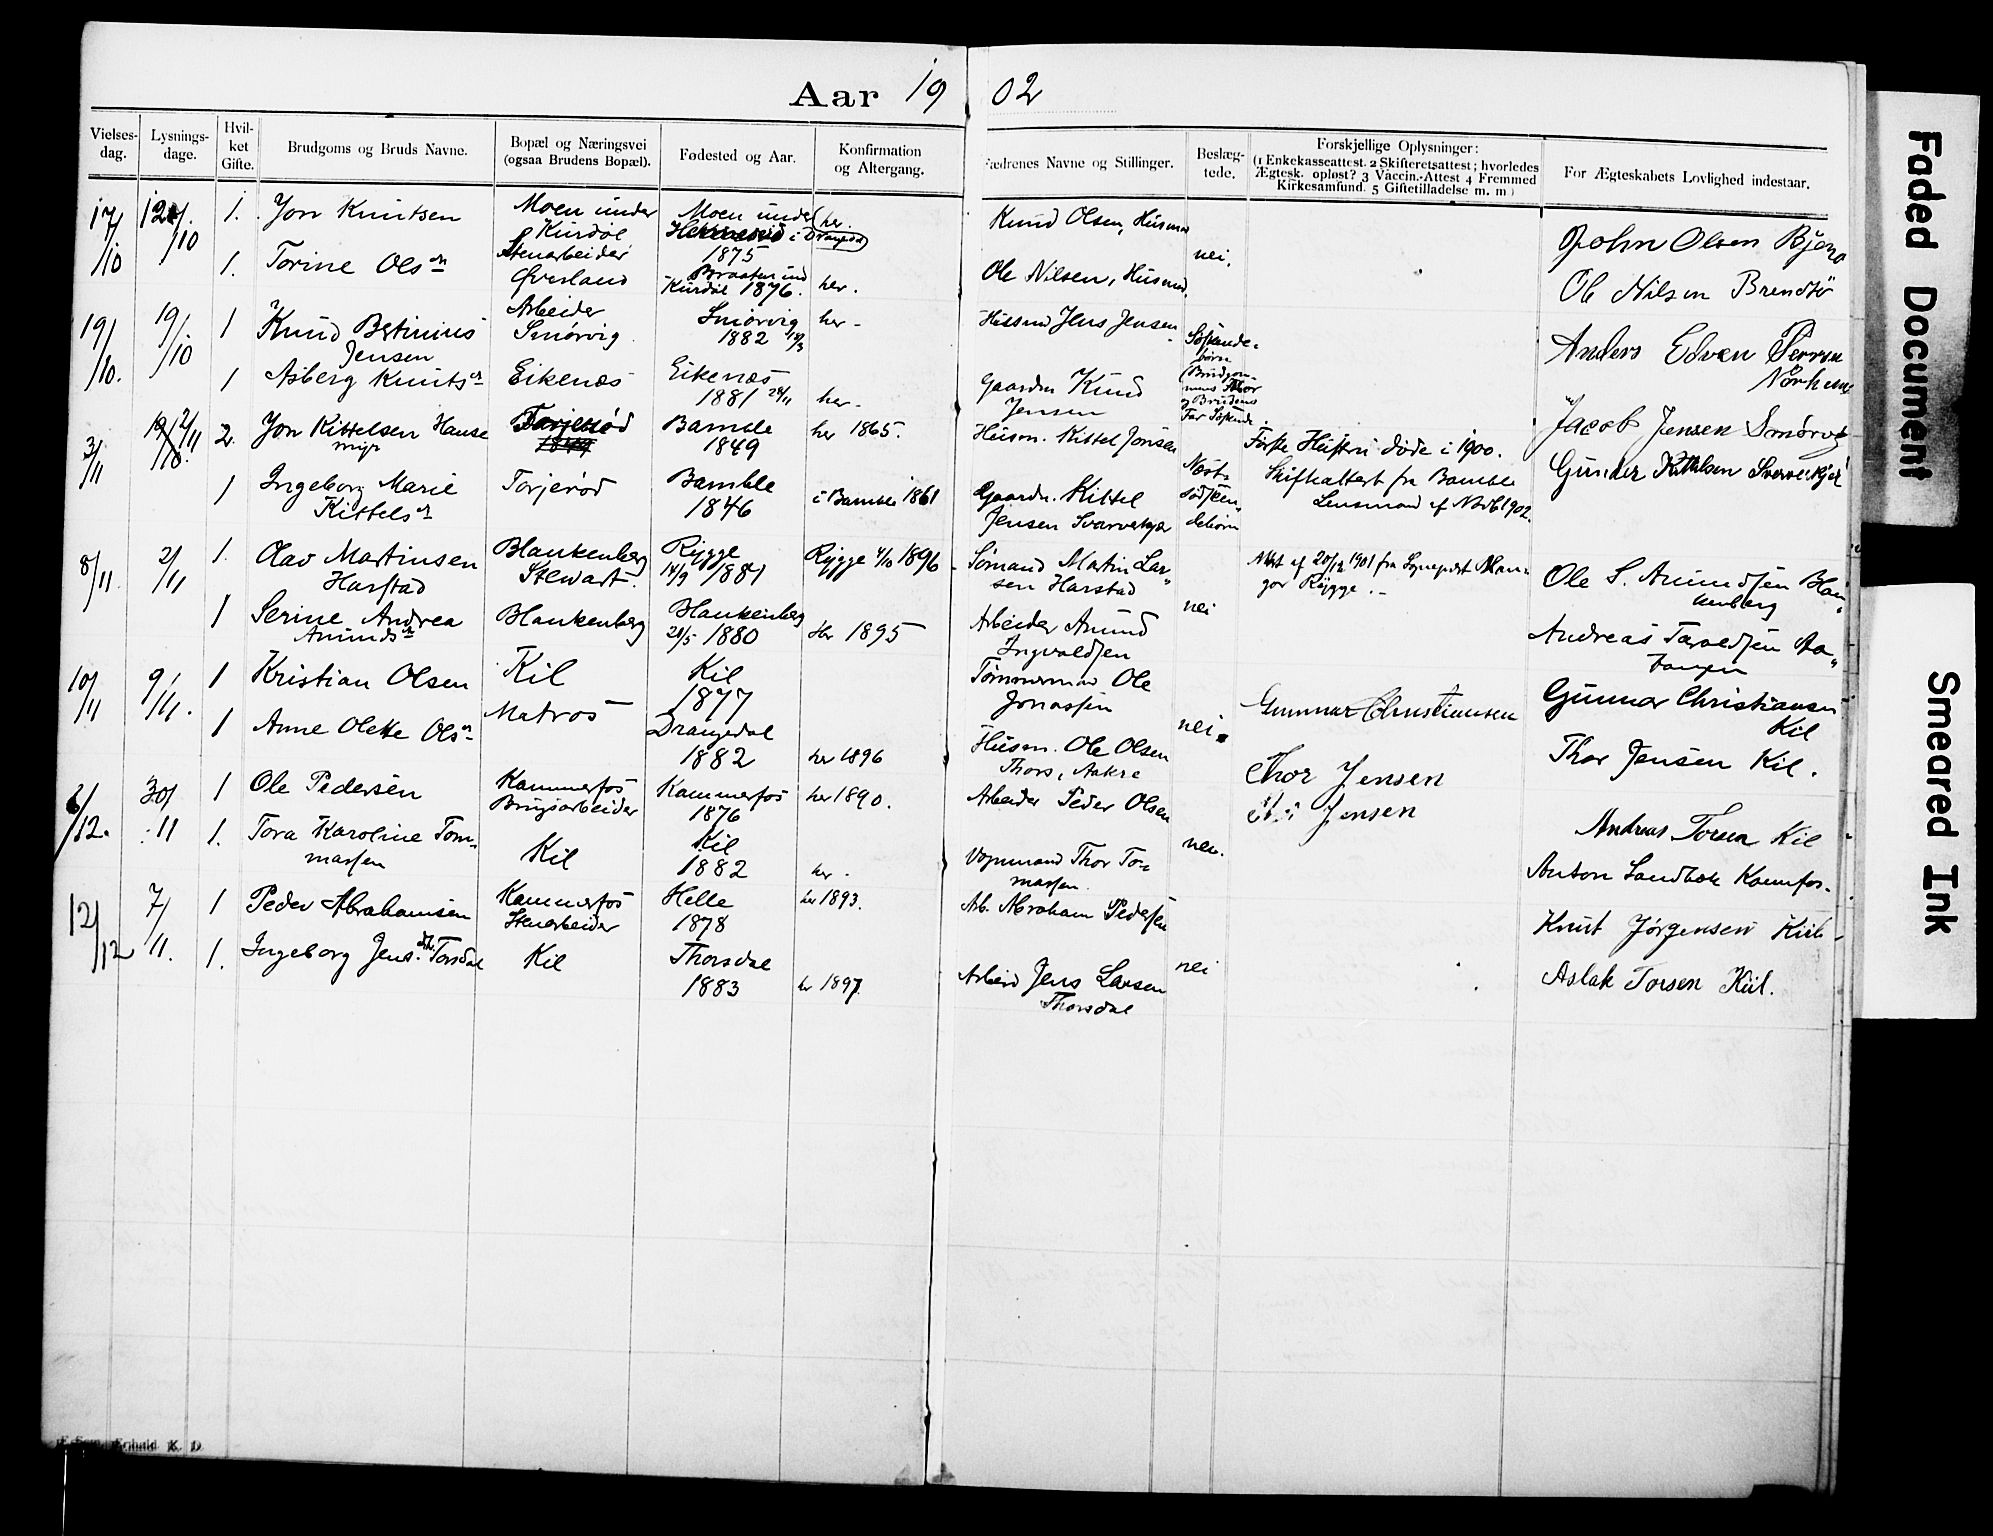 Aar 1902
Vielses-dag. Lysnings-dage. Hvil-ket Gifte. Brudgoms og Bruds Navne. Bopæl og Næringsvei (ogsaa Brudens Bopæl). Fødested og Aar. Konfirmation og Altergang. Fædrenes Navne og Stillinger. Beslæg-tede. Forskjellige Oplysninger: (1 Enkekasseattest. 2 Skifteretsattest; hvorledes Ægtesk. opløst? 3 Vaccin.-Attest 4 Fremmed Kirkesamfund. 5 Giftetilladelse m. m.) For Ægteskabets Lovlighed indestaar.
17/10 12/10 1. Jon Knutsen Moen under Kurdøl Stenarbeider Moen under i Drangedal 1875 her. Knud Olsen, Husmd nei. John Olsen Bjerva
1. Torine Olsn Øvrland Braaten und Kurdøl 1876. her. Ole Nilsen, Husmd. Ole Nilsen Brendtø
19/10. 19/10 1 Knud Betinius Jensen Arbeider Smørvig Smørvig 1882 her Husmd Jens Jensen Søskende-børn (Brudgom-mens Mor og Brudens Far Søskende Anders Edven
1 Asberg Knutsn Eikenæs Eikenæs 1881 24/11 her Gaardm Knud Jensen Jacob Jensen Smørvig
3/11 2/11 2. Jon Kittelsen Hausemyr Torjerød 1849 Bamble 1849 her 1865. Husm. Kittel Jonsen Næst-sødsken-debørn Første Hustru døde i 1900. Skifteattest fra Bamble Lensmand Gunder Kittelsen
1 Ingeborg Marie Kittelsn Torjerød Bamble 1846 i Bamble 1861 Gaardm. Kittel Jensen Svarvekjær
8/11 2/11 1. Olav Martinsen Harstad Blankenberg Stewart. Rygge 14/9 1881 Rygge 4/10 1896 Sømand Martin Larsen Harstad nei Attest af 20/12 1901 fra Sognepræst Rygge. Ole S. Anundsen Blankenberg
1 Serine Andrea Anundsn Blankenberg Blankenberg 28/5 1880 Her 1895 Arbeider Anund Ingvaldsen Andreas Taraldsen
10/11 9/11. 1 Kristian Olsen Kil Matros Kil 1877 Tømmermand Ole Jonassen nei. Gunnar Christiansen Gunnar Christiansen Kil
1 Anne Olette Olsn Drangedal 1882 her 1896 Husm. Ole Olsen Thors, Aakre Thor Jensen Thor Jensen Kil.
6/12. 30/11 1 Ole Pedersen Kammerfos Brugsarbeider Kammerfos 1876 her 1890. Arbeider Peder Olsen nei. Jensen Andreas Torsen Kil
1. Tora Karoline Tommassen Kil Kil 1882 her. Vognmand Thor Tomassen Anton Sandbæk Kamfos.
12/12 7/11. 1 Peder Abrahamsen Kammerfos Stenarbeider Helle 1878 her 1893. Arb. Abraham Pedersen nei Knut Jørgensen Kiil
1. Ingeborg Jens. dtr. Torsdal Kil Thorsdal 1883 her 1897. Arbeid Jens Larsen Thorsdal Aslak Torsen Kiil.
Faded Document
Smeared Ink